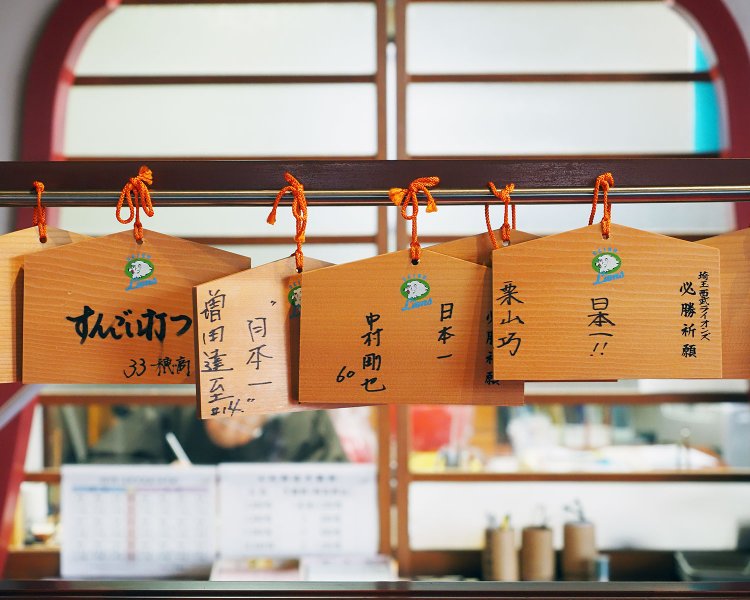 Lions
すんごい打つ
33 一穂高
増田達至
#14
"日本一"
Lions
日本一
中村剛也
60
必勝祈願
栗山巧
Lions
埼玉西武ライオンズ
必勝祈願
日本一!!